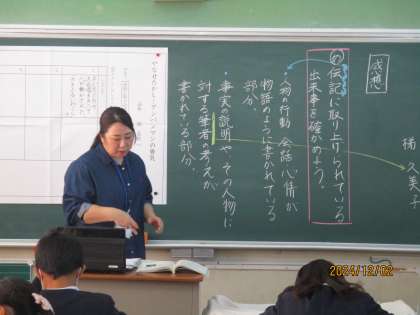 感想
め伝記に取り上げられている
出来事を確かめよう。
・人物の行動 会話 心情が
物語のように書かれている
部分。
・事実の説明や、その人物に
対する筆者の考えが
書かれている部分。
久美子
やなせたかし―アンパンマンの勇気
2024/12/02